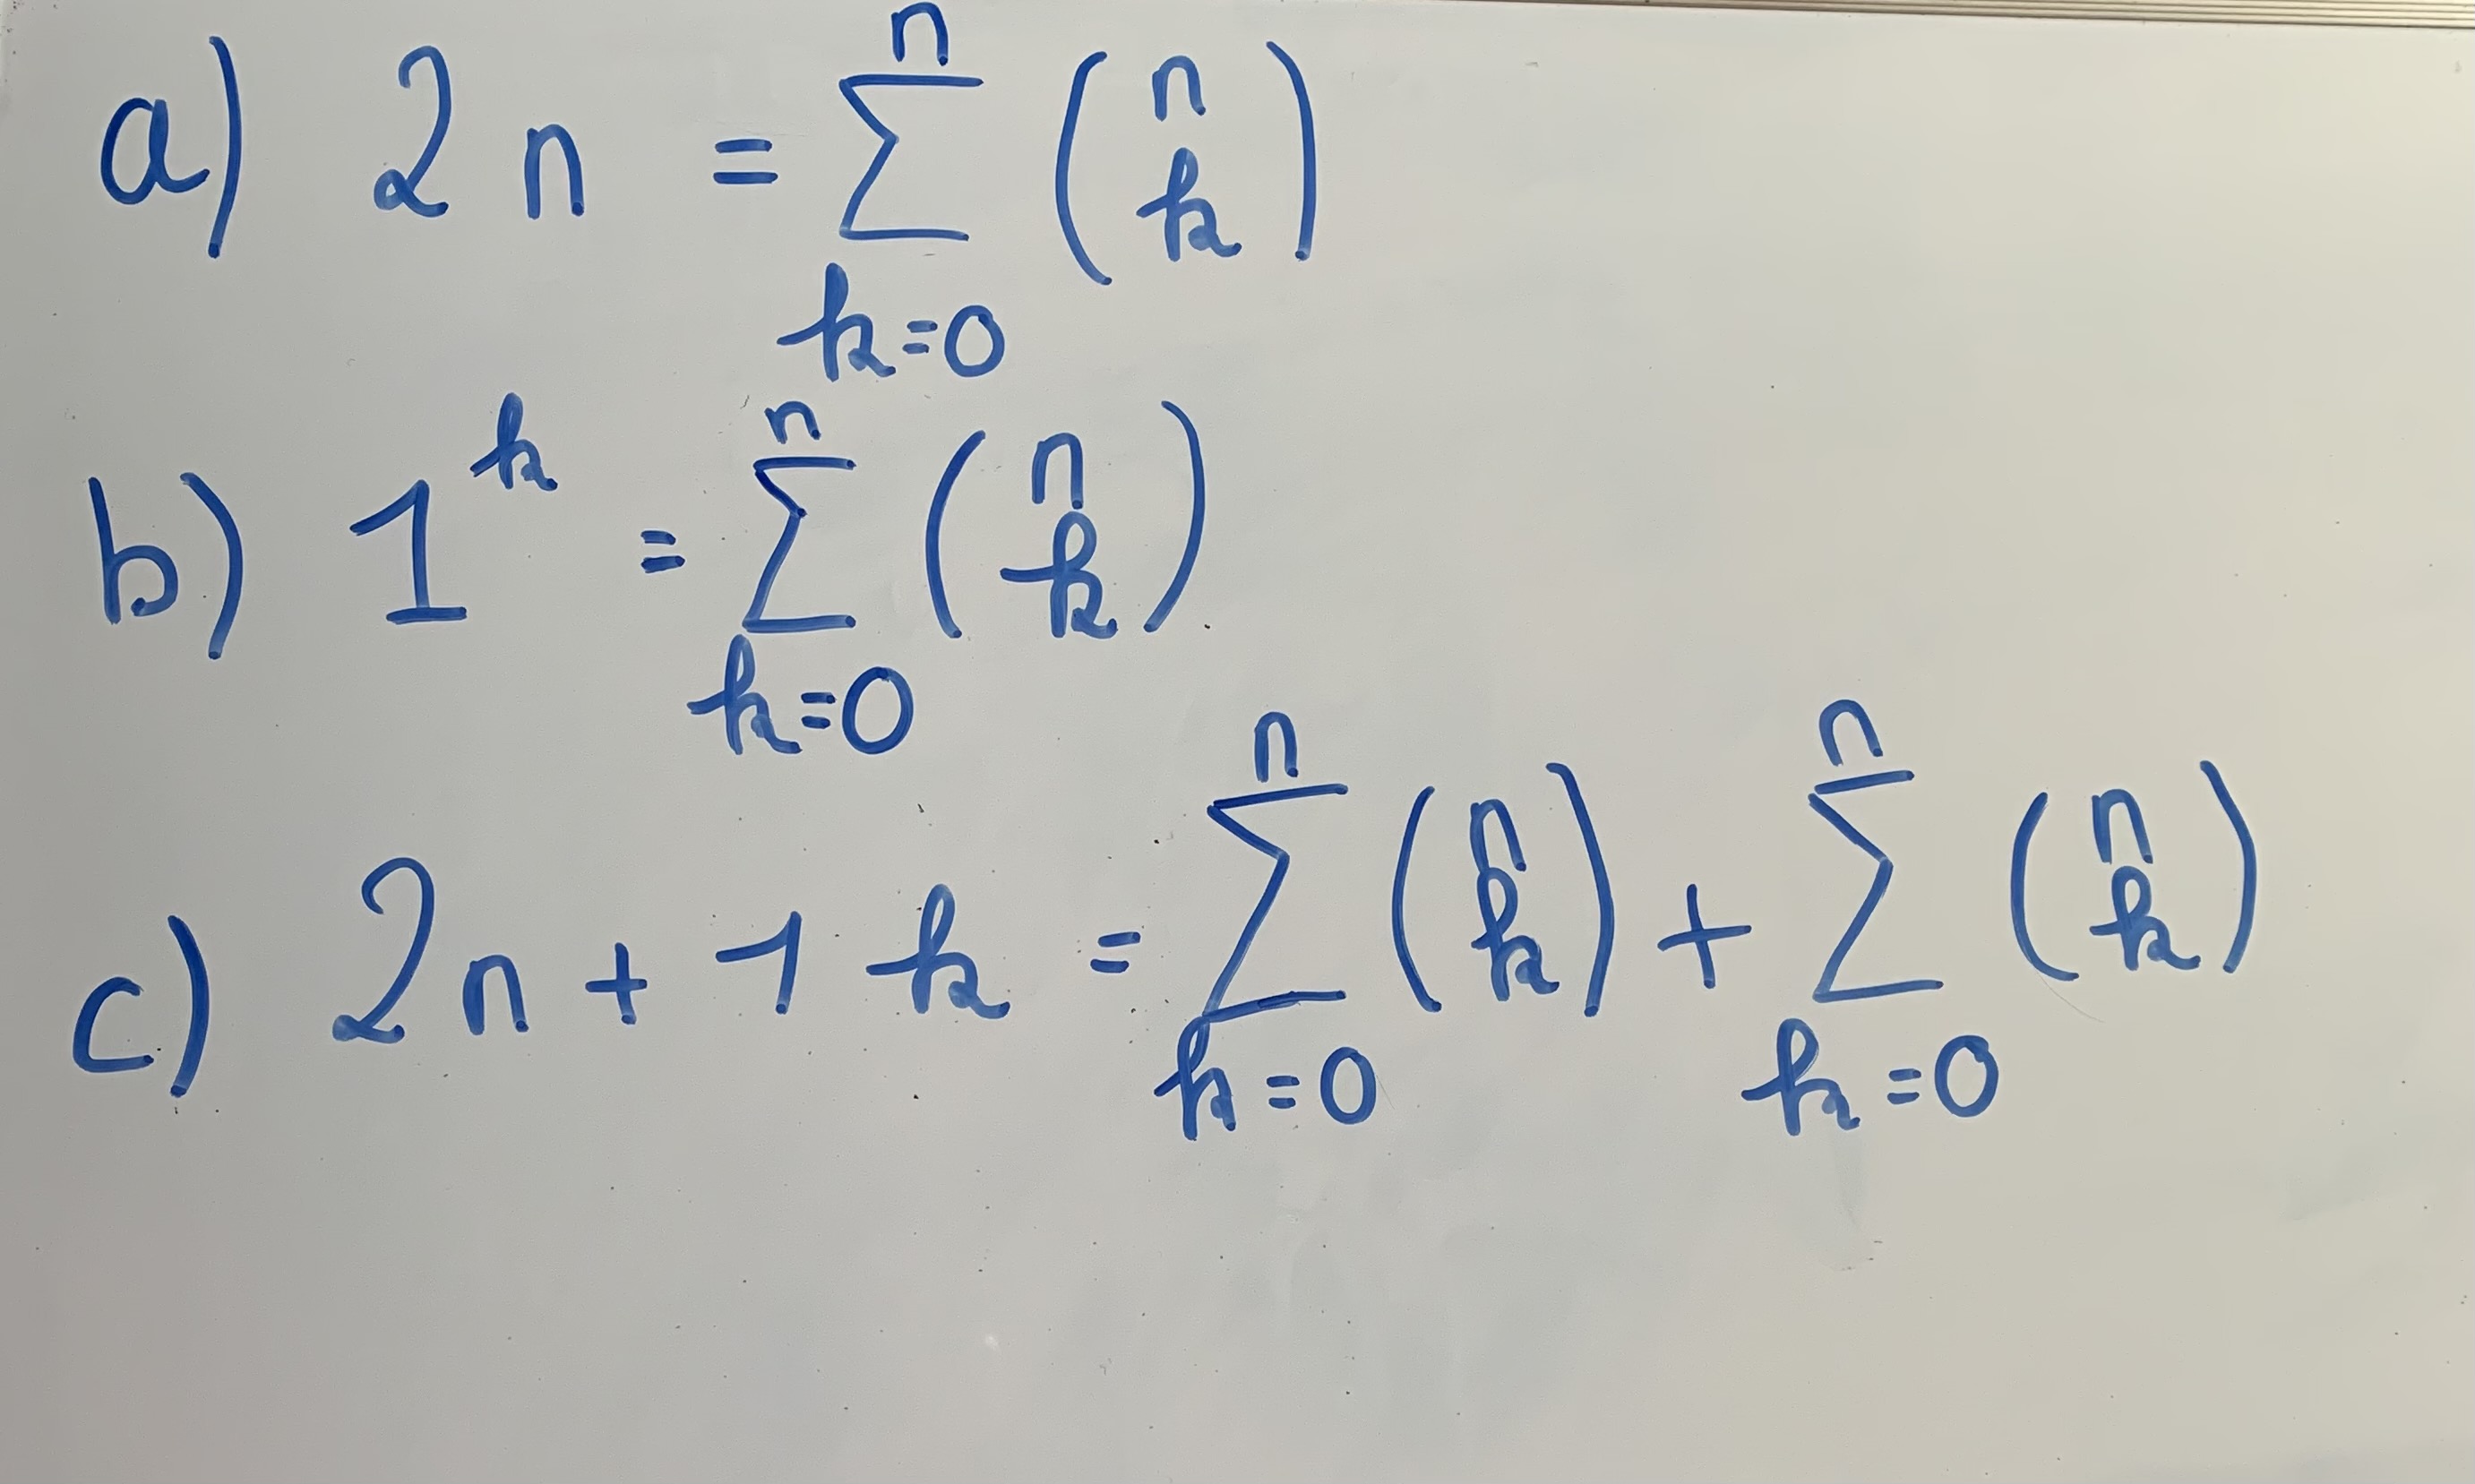 a) 2 n = \sum_{k=0}^{n} \binom{n}{k}
b) 1^k = \sum_{k=0}^{n} \binom{n}{k}
c) 2n + 1 k = \sum_{k=0}^{n} \binom{n}{k} + \sum_{k=0}^{n} \binom{n}{k}